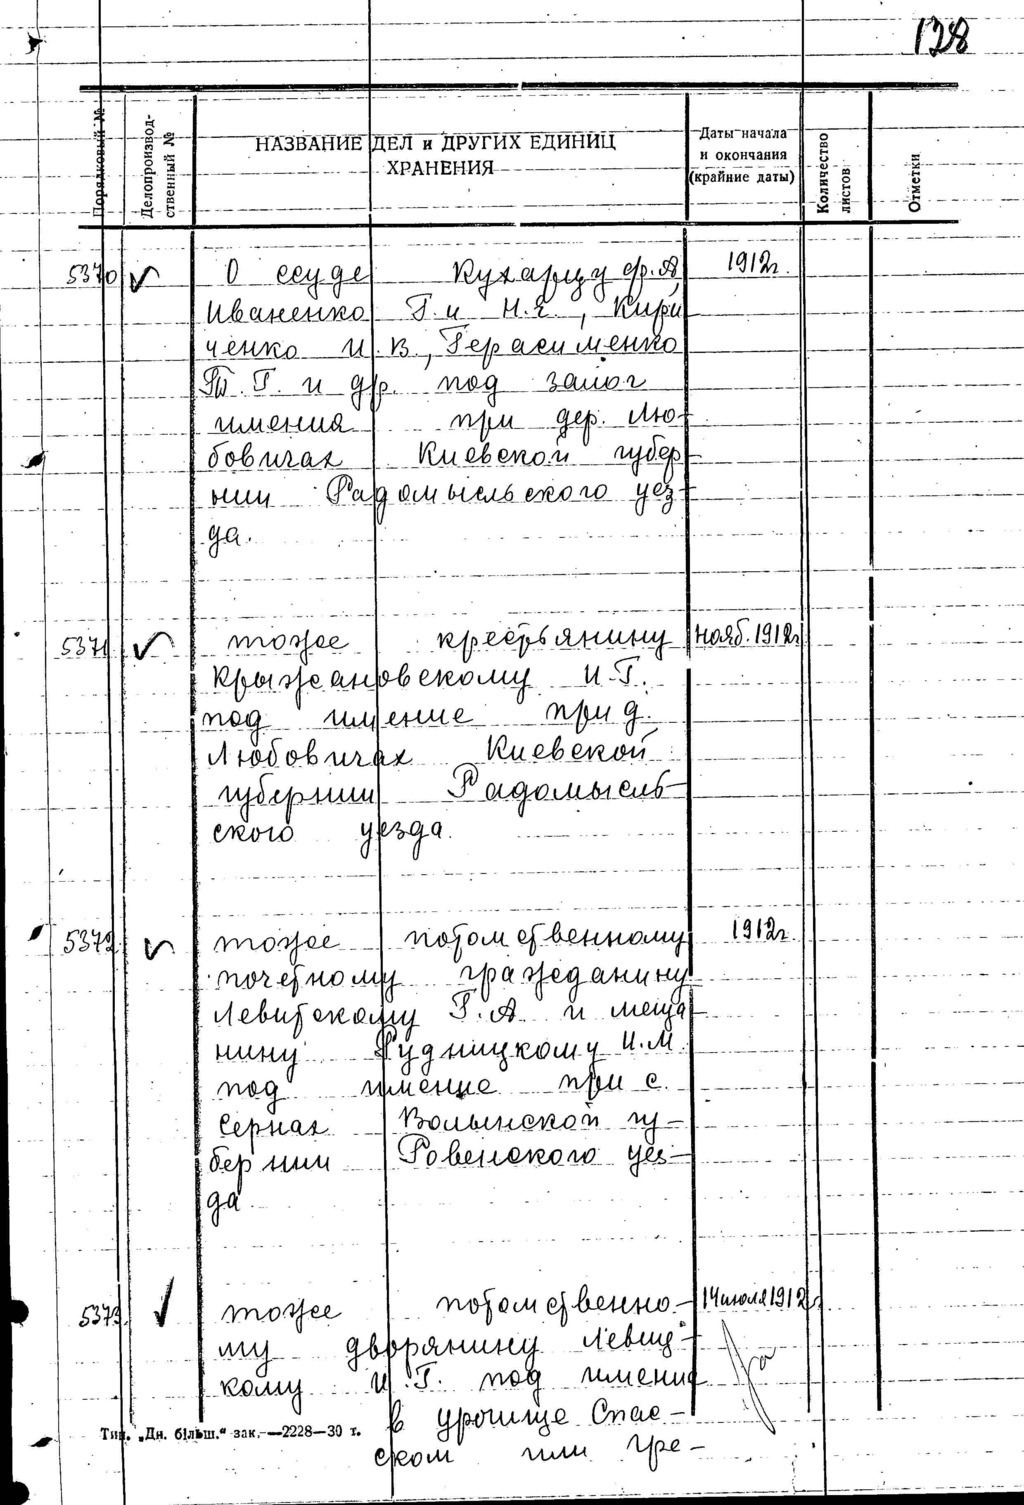 128
Порядковый №
Делопроизвод-
ственный №
НАЗВАНИЕ ДЕЛ и ДРУГИХ ЕДИНИЦ
ХРАНЕНИЯ
Даты начала
и окончания
(крайние даты)
Количество
листов
Отметки
5370 О ссуде Кухарцу Ф.А 1912г.
Иваненко Г. и Н.Г., Кири
ченко И.В., Герасименко
Т.Г. и др. под залог
имения при дер. Лю-
бовичах Киевской губер-
нии Радомысльского уез-
да.
5371 тоже крестьянину нояб. 1912г
Крыжановскому И.Г.
под имение при д.
Любовичах Киевской
губернии Радомысль-
ского уезда.
5372 тоже потомственному 1912г.
почетному гражданину
Левитскому Г.А и меща-
нину Рудницкому И.М.
под имение при с.
Сернах Волынской гу-
бернии Ровенского уез-
да.
5373 тоже потомственно- 14 июля 1912г
му дворянину Левиц-
кому И.Г. под имение
в урочище Спас-
ском или Гре-
Тип. „Дн. більш.“ зак.—2228—30 т.